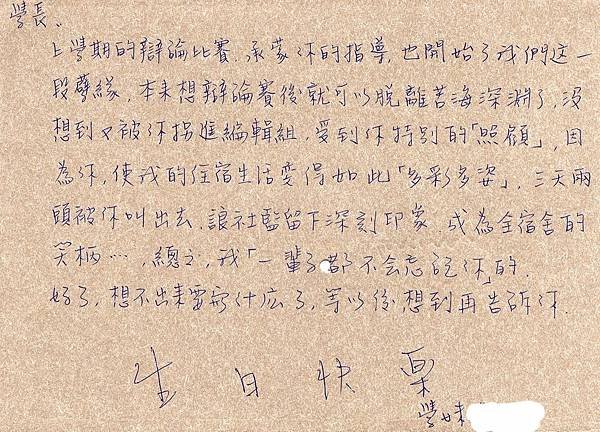 學長:
上學期的辯論比賽,承蒙你的指導,也開始了我們這一
段孽緣,本來想辯論賽後就可以脫離苦海深淵了,沒
想到又被你拐進編輯組,受到你特別的「照顧」,因
為你,使我的住宿生活變得如此「多彩多姿」,三天兩
頭被你叫出去,讓社監留下深刻印象,成為全宿舍的
笑柄…,總之,我「一輩子都不会忘記你」的.
好了,想不出來要寫什広了,等以後想到再告訴你.
生日快樂
學妹